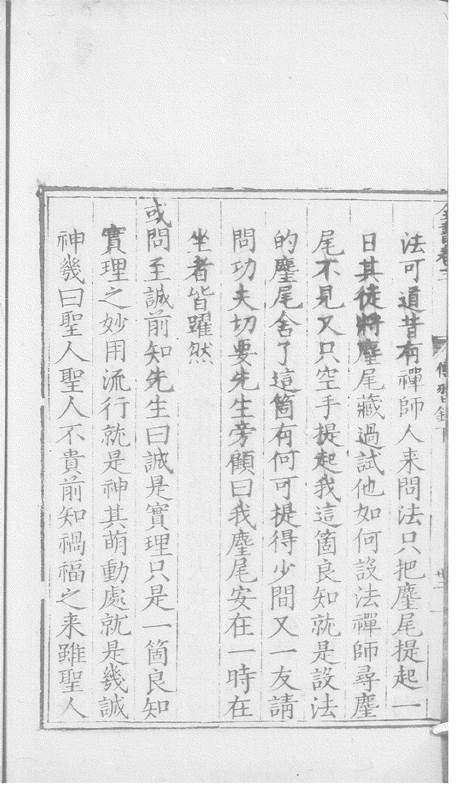 法可道昔有禪師人来問法只把麈尾提起一
日其徒將麈尾藏過試他如何設法禪師尋麈
尾不見又只空手提起我這箇良知就是設法
的麈尾舍了這箇有何可提得少間又一友請
問功夫切要先生旁顧曰我麈尾安在一時在
坐者皆躍然
或問至誠前知先生曰誠是實理只是一箇良知
實理之妙用流行就是神其萌動處就是幾誠
神幾曰聖人聖人不貴前知禍福之来雖聖人